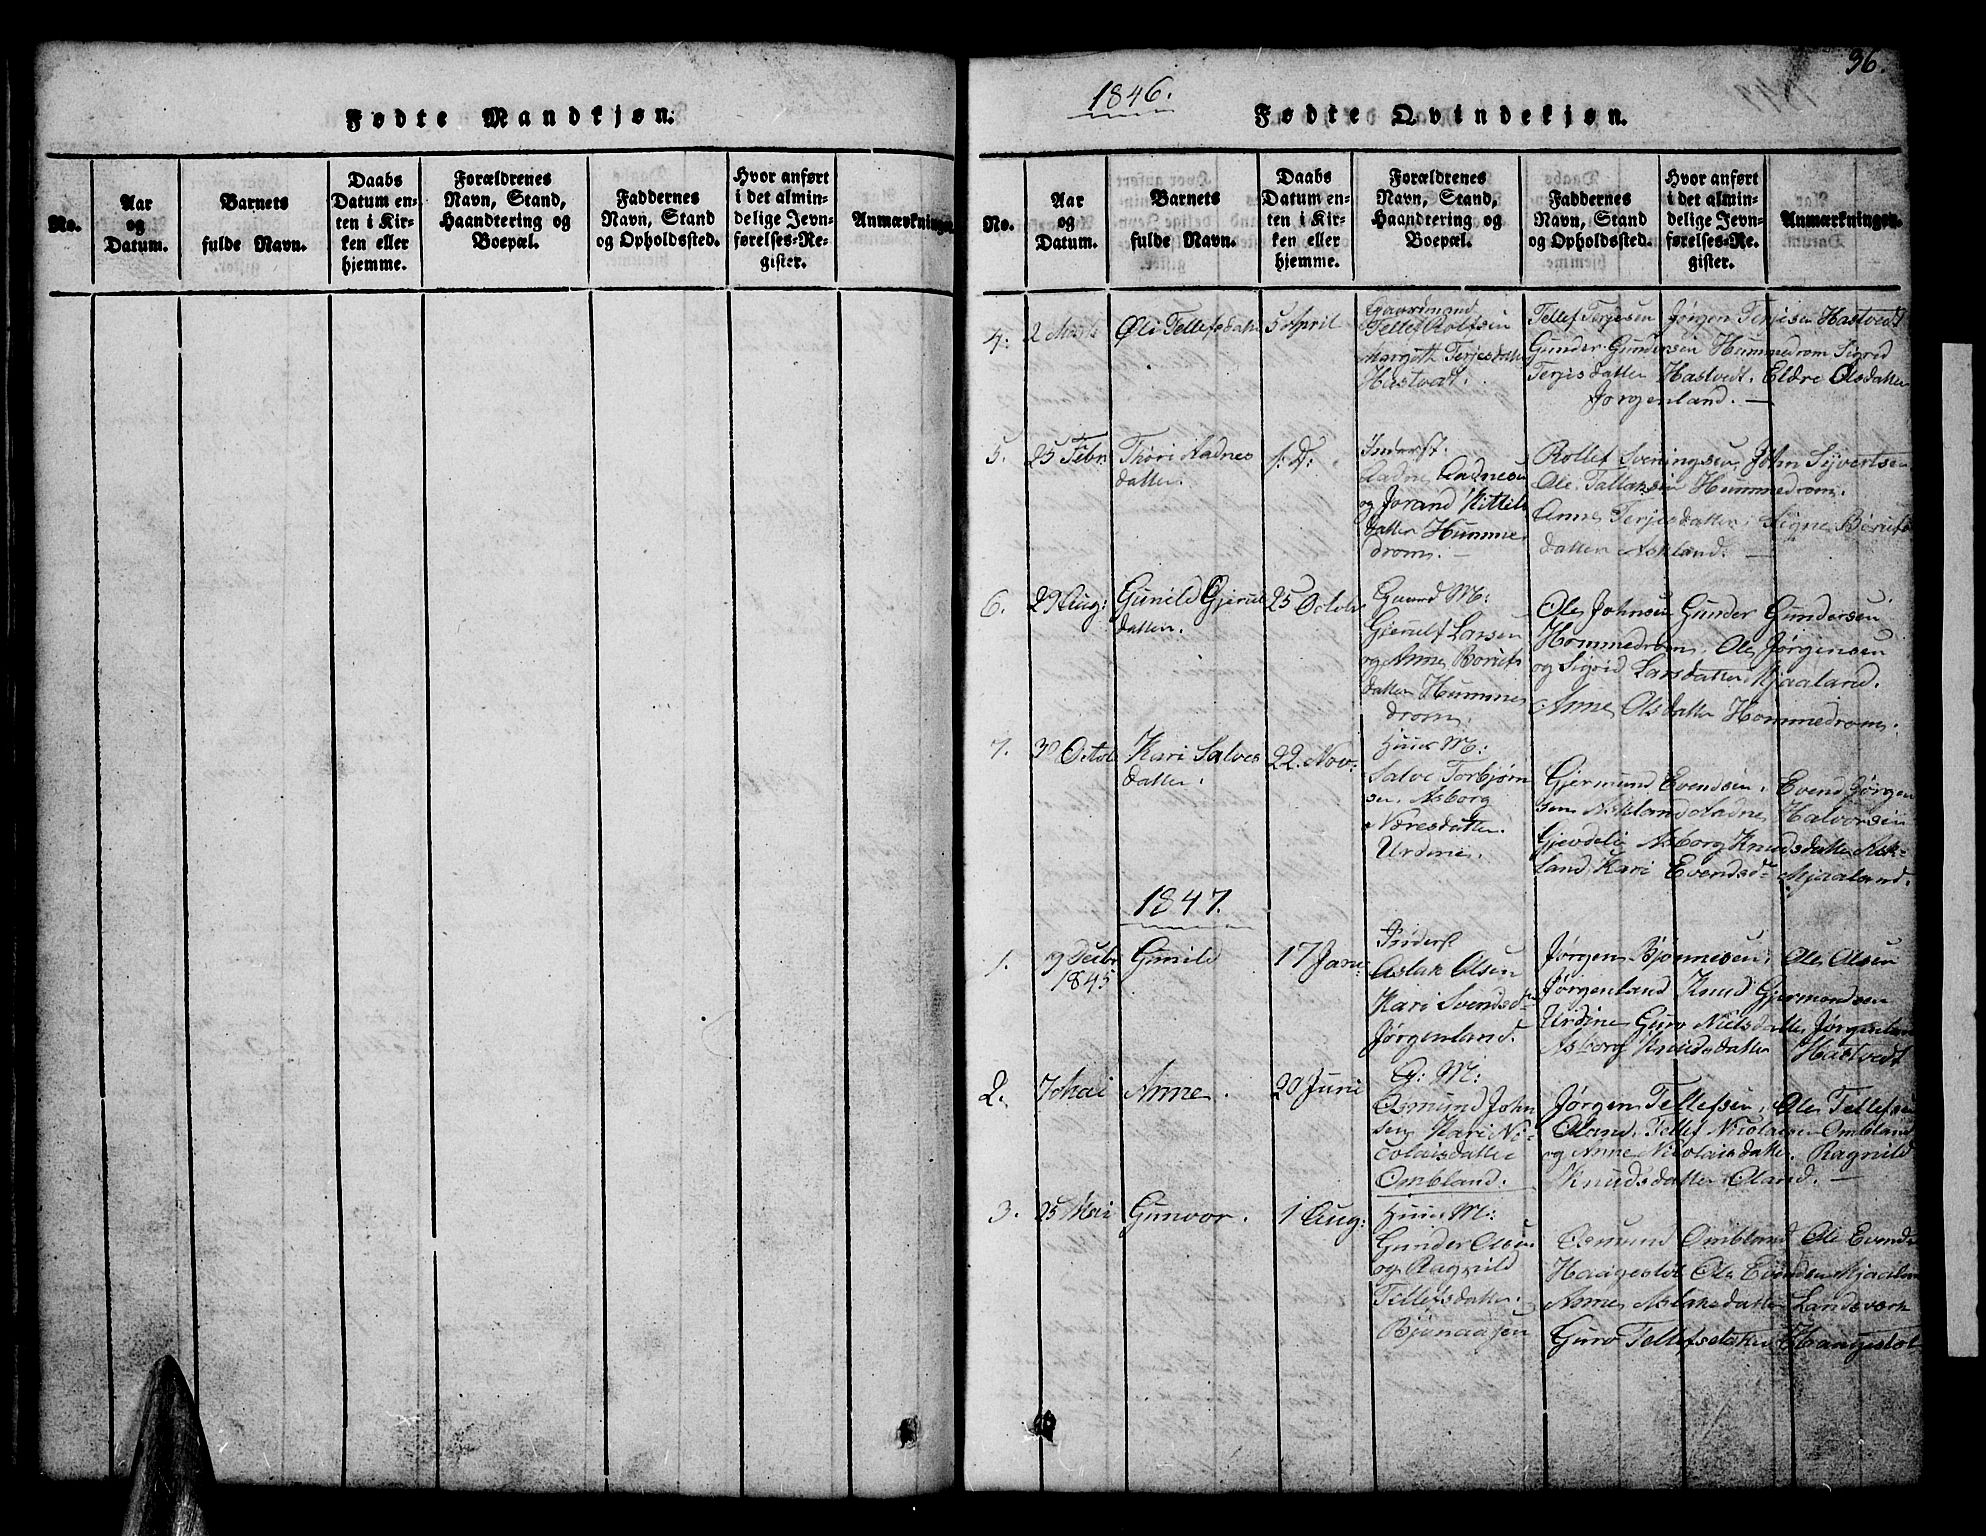 Fødte Mandkjøn.
No.
Aar
og
Datum.
Barnets
fulde Navn.
Daabs
Datum en-
ten i Kir-
ken eller
hjemme.
Forældrenes
Navn, Stand,
Haandtering og
Boepæl.
Faddernes
Navn, Stand
og Opholdssted.
Hvor anført
i det almin-
delige Jevn-
førelses-Re-
gister.
Anmærkninger.
36.
1846.
Fødte Qvindekjøn.
No.
Aar
og
Datum.
Barnets
fulde Navn.
Daabs
Datum en-
ten i Kir-
ken eller
hjemme.
Forældrenes
Navn, Stand,
Haandtering og
Boepæl.
Faddernes
Navn, Stand
og Opholdssted.
Hvor anført
i det almin-
delige Jevn-
førelses-Re-
gister.
Anmærkninger.
4.
2 Marts
Øli Tellefsdatter
5 April
Gaardmand
Tellef Rolfsen
Margith Terjesdatter
Hastvedt.
Tellef Terjesen Jørgen Terjesen Hastvedt
Gunder Gundersen Hummedrom Sigrid
Terjesdatter Hastvedt. Eldre Olsdatter
Jorgenland. —
5.
25 Febr:
Thori Aadnes
datter.
s: D:
Inderst.
Aadne Aadnesen
og Jorand Kittils
datter Humme
drom. —
Rollef Sveningsen, John Syvertsen
Ole Tallaksen Hummedrom.
Anne Terjesdatter, Signe Børufs
datter Askland. —
6.
29 Aug:
Gunild Gjerul
datter.
25 Octob
Gaard M:
Gjerulf Larsen
og Anne Borufs
datter Humme
drom.
Ole Johnsen Gunder Gundersen
Hommedrom. Ole Jørgensen
og Sigrid Larsdatter Mjaaland.
Anne Olsdatter Hommedrom.
7.
30 Octob
Kari Salves
datter.
22. Nov:
Huus M:
Salve Torbjørn
sen, Asborg
Næresdatter
Urdine.
Gjermund Evendsen. Evend Jørgen
sen Askland Aadne Halvorsen
Gjevdeli Asborg Knudsdatter Ask-
land Kari Evendsd- Mjaaland.
1847.
1.
9 Decbr
1845
Gunild
17 Jan:
Inderst
Aslak Olsen
Kari Svendsd-
Jørgenland.
Jørgen Bjønnesen. Ole Olsen
Jørgenland Knud Gjermondsen
Urdine Guro Nielsdatter Jørgenland
Asborg Knudsdatter Hastvedt
2.
7 Mai
Anne.
20 Juni
G: M:
Osmund John
sen Kari Ni-
colaisdatter
Ombland.
Jørgen Tellefsen. Ole Tellefsen
Oland. Tellef Nicolaisen Ombland
og Anne Nicolaisdatter. Ragnild
Knudsdatter Oland. —
3.
25 Mai
Gunvor.
1 Aug:
Huus M:
Gunder Olsen
og Ragnild
Tellefsdatter.
Bjønaasen
Osmund Ombland Ole Evends
Haagestøl Ole Evendsen Mjaaland
Anne Aslaksdatter Landsværk
Guro Tellefsdatter Haugestøl